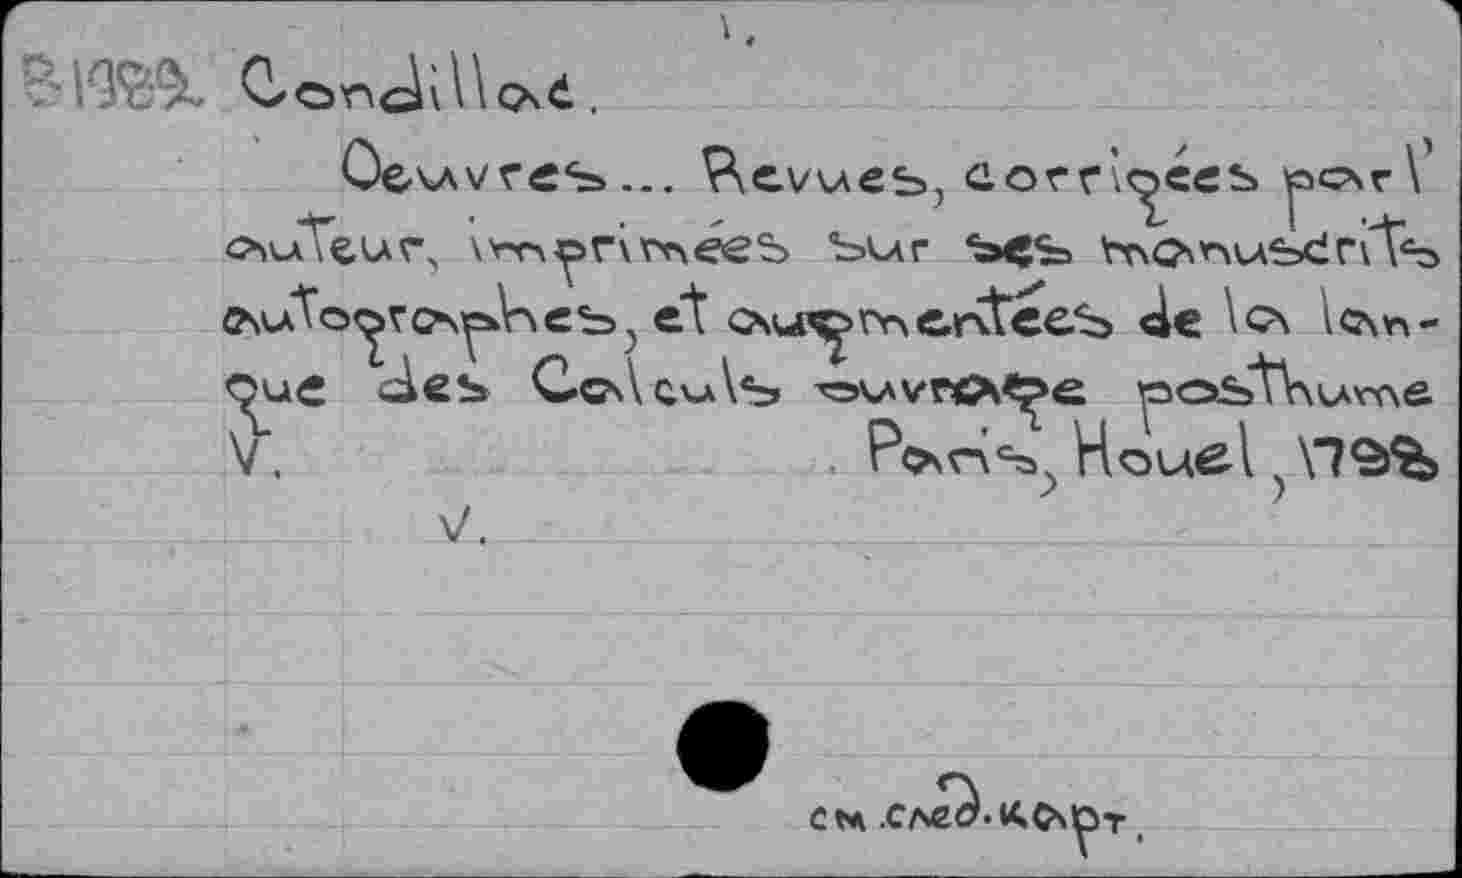 1.
Condillac.
Oeuvres... Revues, corrigées par l'
auteur, imprimées sur ses manuscrits
autographes, et augmentées de la lan-
gue des Calculs ouvrage posthume
V. Paris, Houel, 1798
V.
см. след. карт.